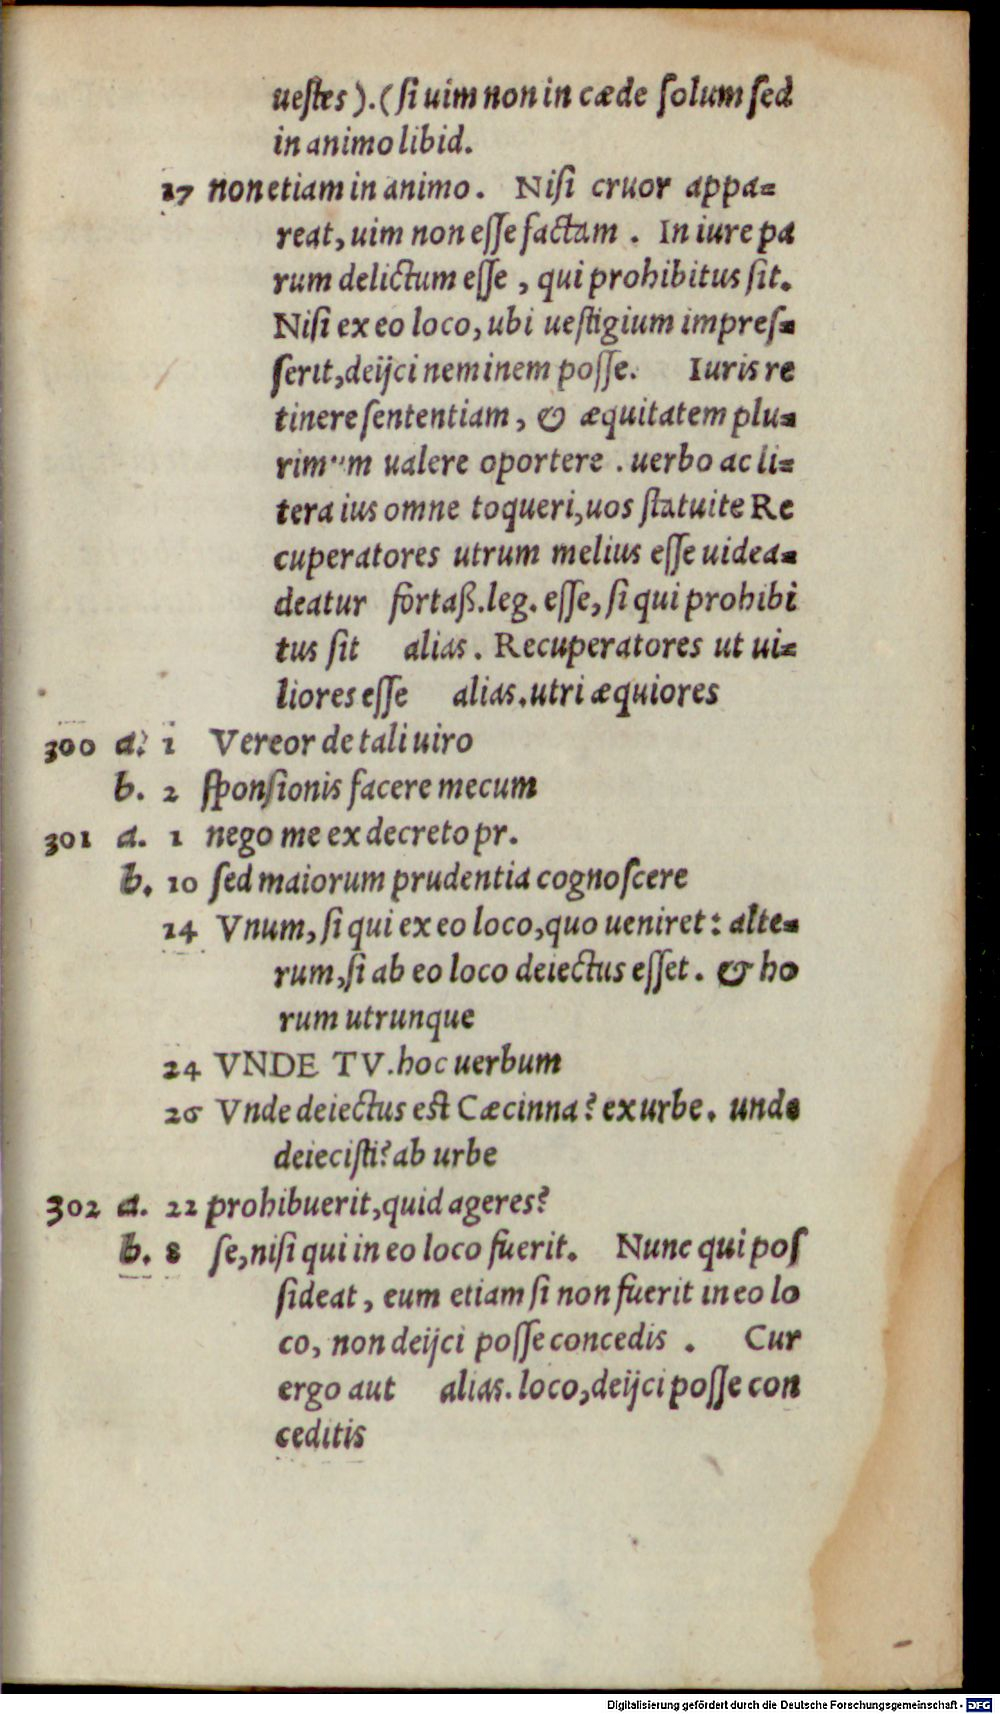 uestes ). ( si uim non in cæde solum sed
in animo libid.
27 non etiam in animo . Nisi cruor appa=
reat, uim non esse factam . In iure pa
rum delictum esse , qui prohibitus sit.
Nisi ex eo loco, ubi uestigium impres=
serit, deijci neminem posse. Iuris re
tinere sententiam, & æquitatem plu=
rimum ualere oportere . uerbo ac li=
tera ius omne toqueri, uos statuite Re
cuperatores utrum melius esse uidea=
deatur fortaß. leg. esse, si qui prohibi
tus sit alias . Recuperatores ut ui=
liores esse alias. utri æquiores
300 a. 1 Vereor de tali uiro
b. 2 sponsionis facere mecum
301 a. 1 nego me ex decreto pr.
b. 10 sed maiorum prudentia cognoscere
14 Vnum, si qui ex eo loco, quo ueniret: alte=
rum, si ab eo loco deiectus esset. & ho
rum utrunque
24 VNDE TV. hoc uerbum
26 Vnde deiectus est Cæcinna? ex urbe. unde
deiecisti? ab urbe
302 a. 22 prohibuerit, quid ageres?
b. 8 se, nisi qui in eo loco fuerit. Nunc qui pos
sideat, eum etiam si non fuerit in eo lo
co, non deijci posse concedis . Cur
ergo aut alias. loco, deijci posse con
ceditis
Digitalisierung gefördert durch die Deutsche Forschungsgemeinschaft - DFG